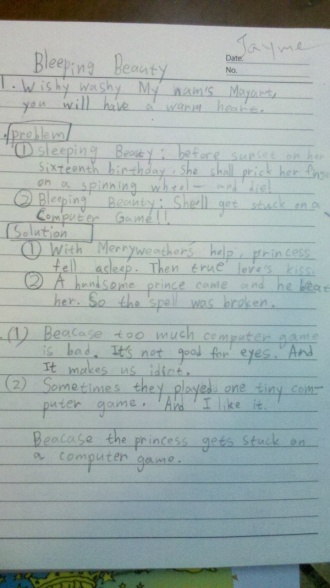 Jayme
Date:
No.
Bleeping Beauty
1. Wishy washy My nam's Mayart,
you will have a warm heart.
problem
① Sleeping Beauty: before sunset on her
sixteenth birthday. She shall prick her
on a spinning wheel — and die!
② Bleeping Beauty: She'll get stuck on a
Computer Game!!
Solution
① With Merryweather's help, princess
fell asleep. Then true love's kiss.
② A handsome prince came and he beat
her. So the spell was broken.
(1) Beacase too much computer game
is bad. It's not good for eyes. And
It makes us idiot.
(2) Sometimes they played one tiny com-
puter game. And I like it.
Beacase the princess gets stuck on
a computer game.